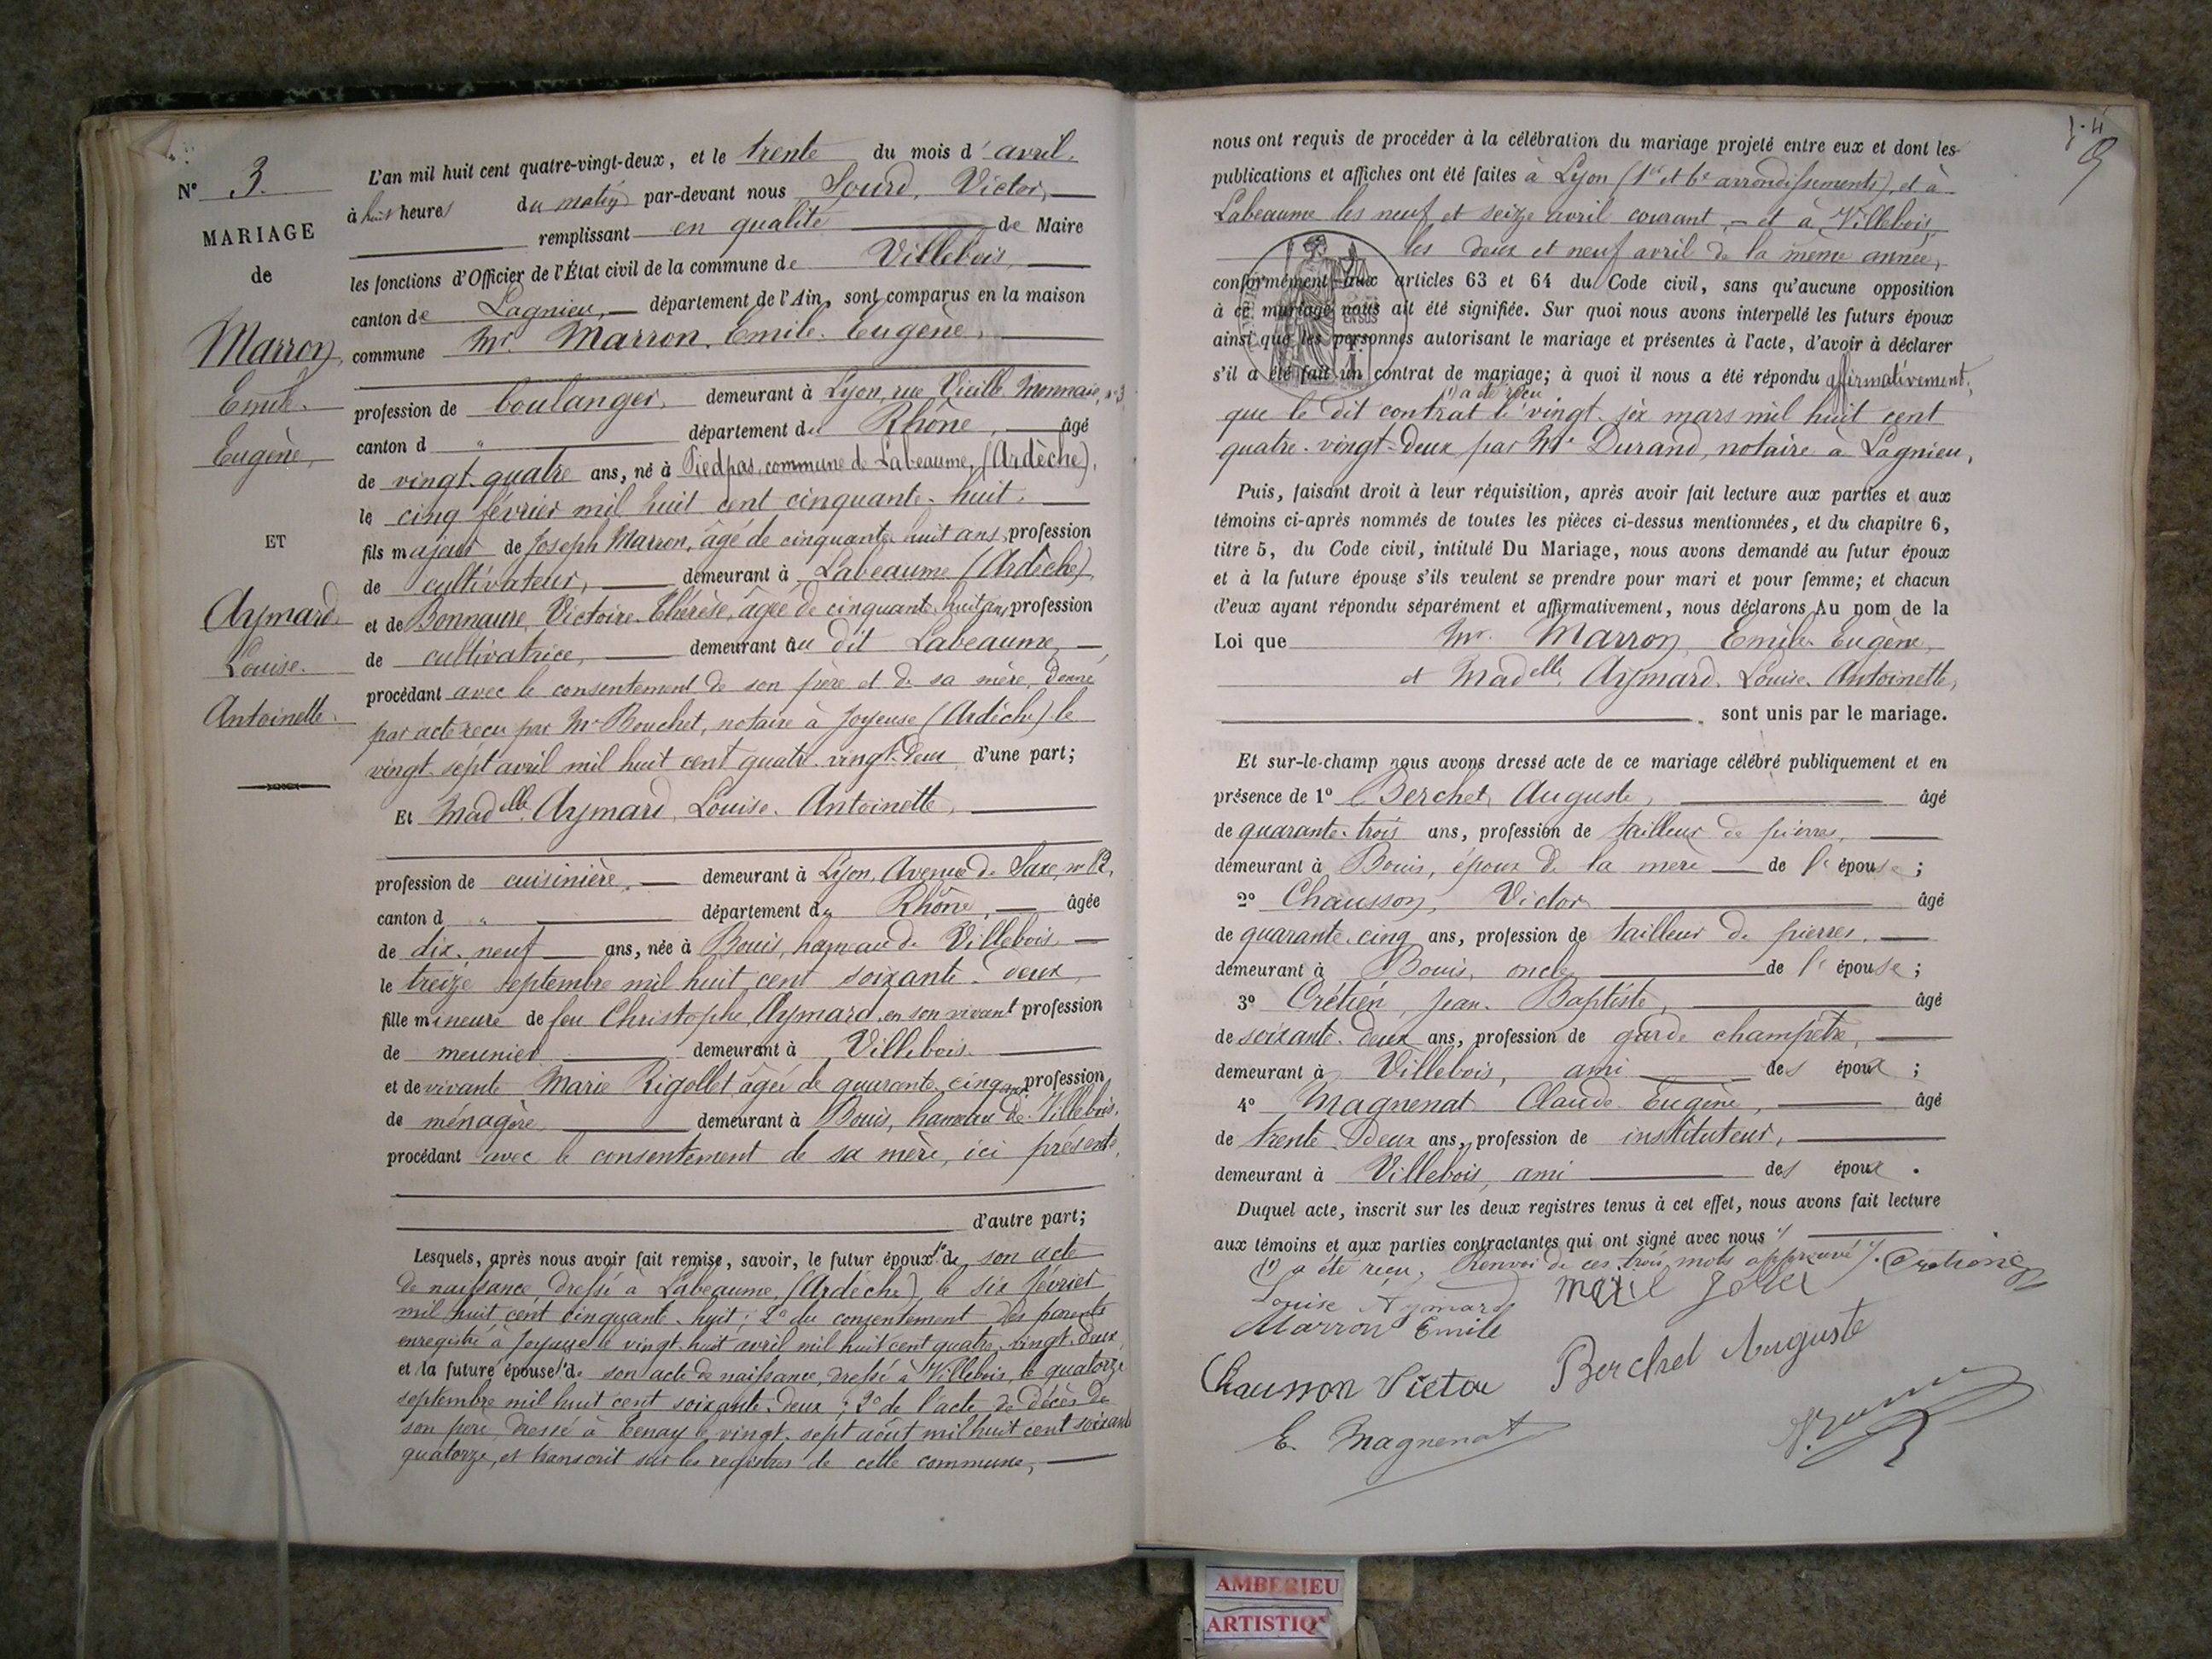 N° 3.
MARIAGE
de
Marron
Emile
Eugène,
ET
Aymard
Louise.
Antoinette.
L'an mil huit cent quatre-vingt-deux, et le trente du mois d'avril.
à huit heures du matin par-devant nous Sourd, Victor,
remplissant en qualité de Maire
les fonctions d'Officier de l'État civil de la commune de Villebois,
canton de Lagnieu, département de l'Ain, sont comparus en la maison
commune Mr. Marron. Emile. Eugène,
profession de boulanger, demeurant à Lyon, rue Vieille Monnaie, n° 3
canton d " département du Rhône, âgé
de vingt-quatre ans, né à Piedpas, commune de Labeaume, (Ardèche),
le cinq février mil huit cent cinquante-huit.
fils majeur de Joseph Marron, âgé de cinquante huit ans, profession
de cultivateur, demeurant à Labeaume (Ardèche)
et de Bonnaure, Victoire. Thérèse, âgée de cinquante-huit ans, profession
de cultivatrice, demeurant au dit Labeaume,
procédant avec le consentement de son père et de sa mère, donné
par acte reçu par Me Bouchet, notaire à Joyeuse (Ardèche) le
vingt-sept avril mil huit cent quatre-vingt-deux d'une part;
Et Madelle Aymard, Louise. Antoinette,
profession de cuisinière, demeurant à Lyon, Avenue de Saxe, n°
canton d " département du Rhône, âgée
de dix-neuf ans, née à Bouis, hameau de Villebois
le treize septembre mil huit cent soixante-deux,
fille mineure de feu Christophe Aymard, en son vivant profession
de meunier demeurant à Villebois.
et de vivante Marie Rigollet, âgée de quarante-cinq ans, profession
de ménagère demeurant à Bouis, hameau de Villebois.
procédant avec le consentement de sa mère, ici présente,
d'autre part;
Lesquels, après nous avoir fait remise, savoir, le futur époux 1° de son acte
de naissance, dressé à Labeaume, (Ardèche), le six février
mil huit cent cinquante-huit; 2° du consentement des parents
enregistré à Joyeuse le vingt-huit avril mil huit cent quatre-vingt-deux,
et la future épouse 1° de son acte de naissance, dressé à Villebois, le quatorze
septembre mil huit cent soixante-deux; 2° de l'acte de décès de
son père, dressé à Tenay le vingt-sept août mil huit cent soixante
quatorze, et transcrit sur les registres de cette commune,
nous ont requis de procéder à la célébration du mariage projeté entre eux et dont les
publications et affiches ont été faites à Lyon (1er et 6e arrondissements), et à
Labeaume les neuf et seize avril courant, et à Villebois,
les deux et neuf avril de la même année,
conformément aux articles 63 et 64 du Code civil, sans qu'aucune opposition
à ce mariage nous ait été signifiée. Sur quoi nous avons interpellé les futurs époux
ainsi que les personnes autorisant le mariage et présentes à l'acte, d'avoir à déclarer
s'il a été fait un contrat de mariage; à quoi il nous a été répondu affirmativement,
(1) a été reçu
que le dit contrat le vingt-six mars mil huit cent
quatre-vingt-deux par Me Durand, notaire à Lagnieu,
Puis, faisant droit à leur réquisition, après avoir fait lecture aux parties et aux
témoins ci-après nommés de toutes les pièces ci-dessus mentionnées, et du chapitre 6,
titre 5, du Code civil, intitulé Du Mariage, nous avons demandé au futur époux
et à la future épouse s'ils veulent se prendre pour mari et pour femme; et chacun
d'eux ayant répondu séparément et affirmativement, nous déclarons Au nom de la
Loi que Mr. Marron, Emile. Eugène,
et Madelle Aymard. Louise. Antoinette,
sont unis par le mariage.
Et sur-le-champ nous avons dressé acte de ce mariage célébré publiquement et en
présence de 1° Berchet, Auguste, âgé
de quarante-trois ans, profession de tailleur de pierres,
demeurant à Bouis, époux de la mère de l'épouse;
2° Chausson, Victor âgé
de quarante-cinq ans, profession de tailleur de pierres.
demeurant à Bouis, oncle de l'épouse;
3° Crétien, Jean-Baptiste, âgé
de soixante-deux ans, profession de garde champêtre,
demeurant à Villebois, ami des époux;
4° Magnenat Claude Eugène, âgé
de trente-deux ans, profession de instituteur,
demeurant à Villebois, ami des époux.
Duquel acte, inscrit sur les deux registres tenus à cet effet, nous avons fait lecture
aux témoins et aux parties contractantes qui ont signé avec nous
(1) a été reçu. Renvoi de ces trois mots approuvé.
Louise Aymard
Marron Emile
Chausson Victor Berchet Auguste
E. Magnenat
AMBERIEU
ARTISTIQ